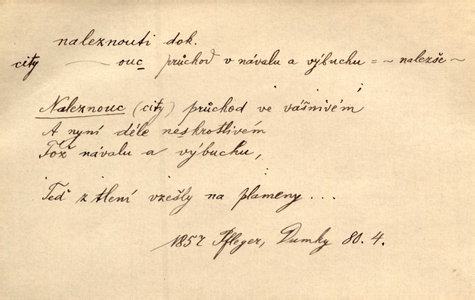 naleznouti dok.
city ~ ouc průchod v návalu a výbuchu = ~ nalezše
Naleznouc (city) průchod ve vášnivém
A nyní déle neskrotlivém
Tož návalu a výbuchu,
Teď z tlení vzešly na plameny ...
1857 Pfleger, Dumky 80. 4.